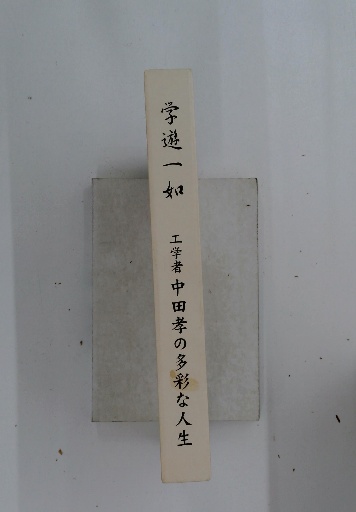 学遊一如
工学者 中田孝の多彩な人生